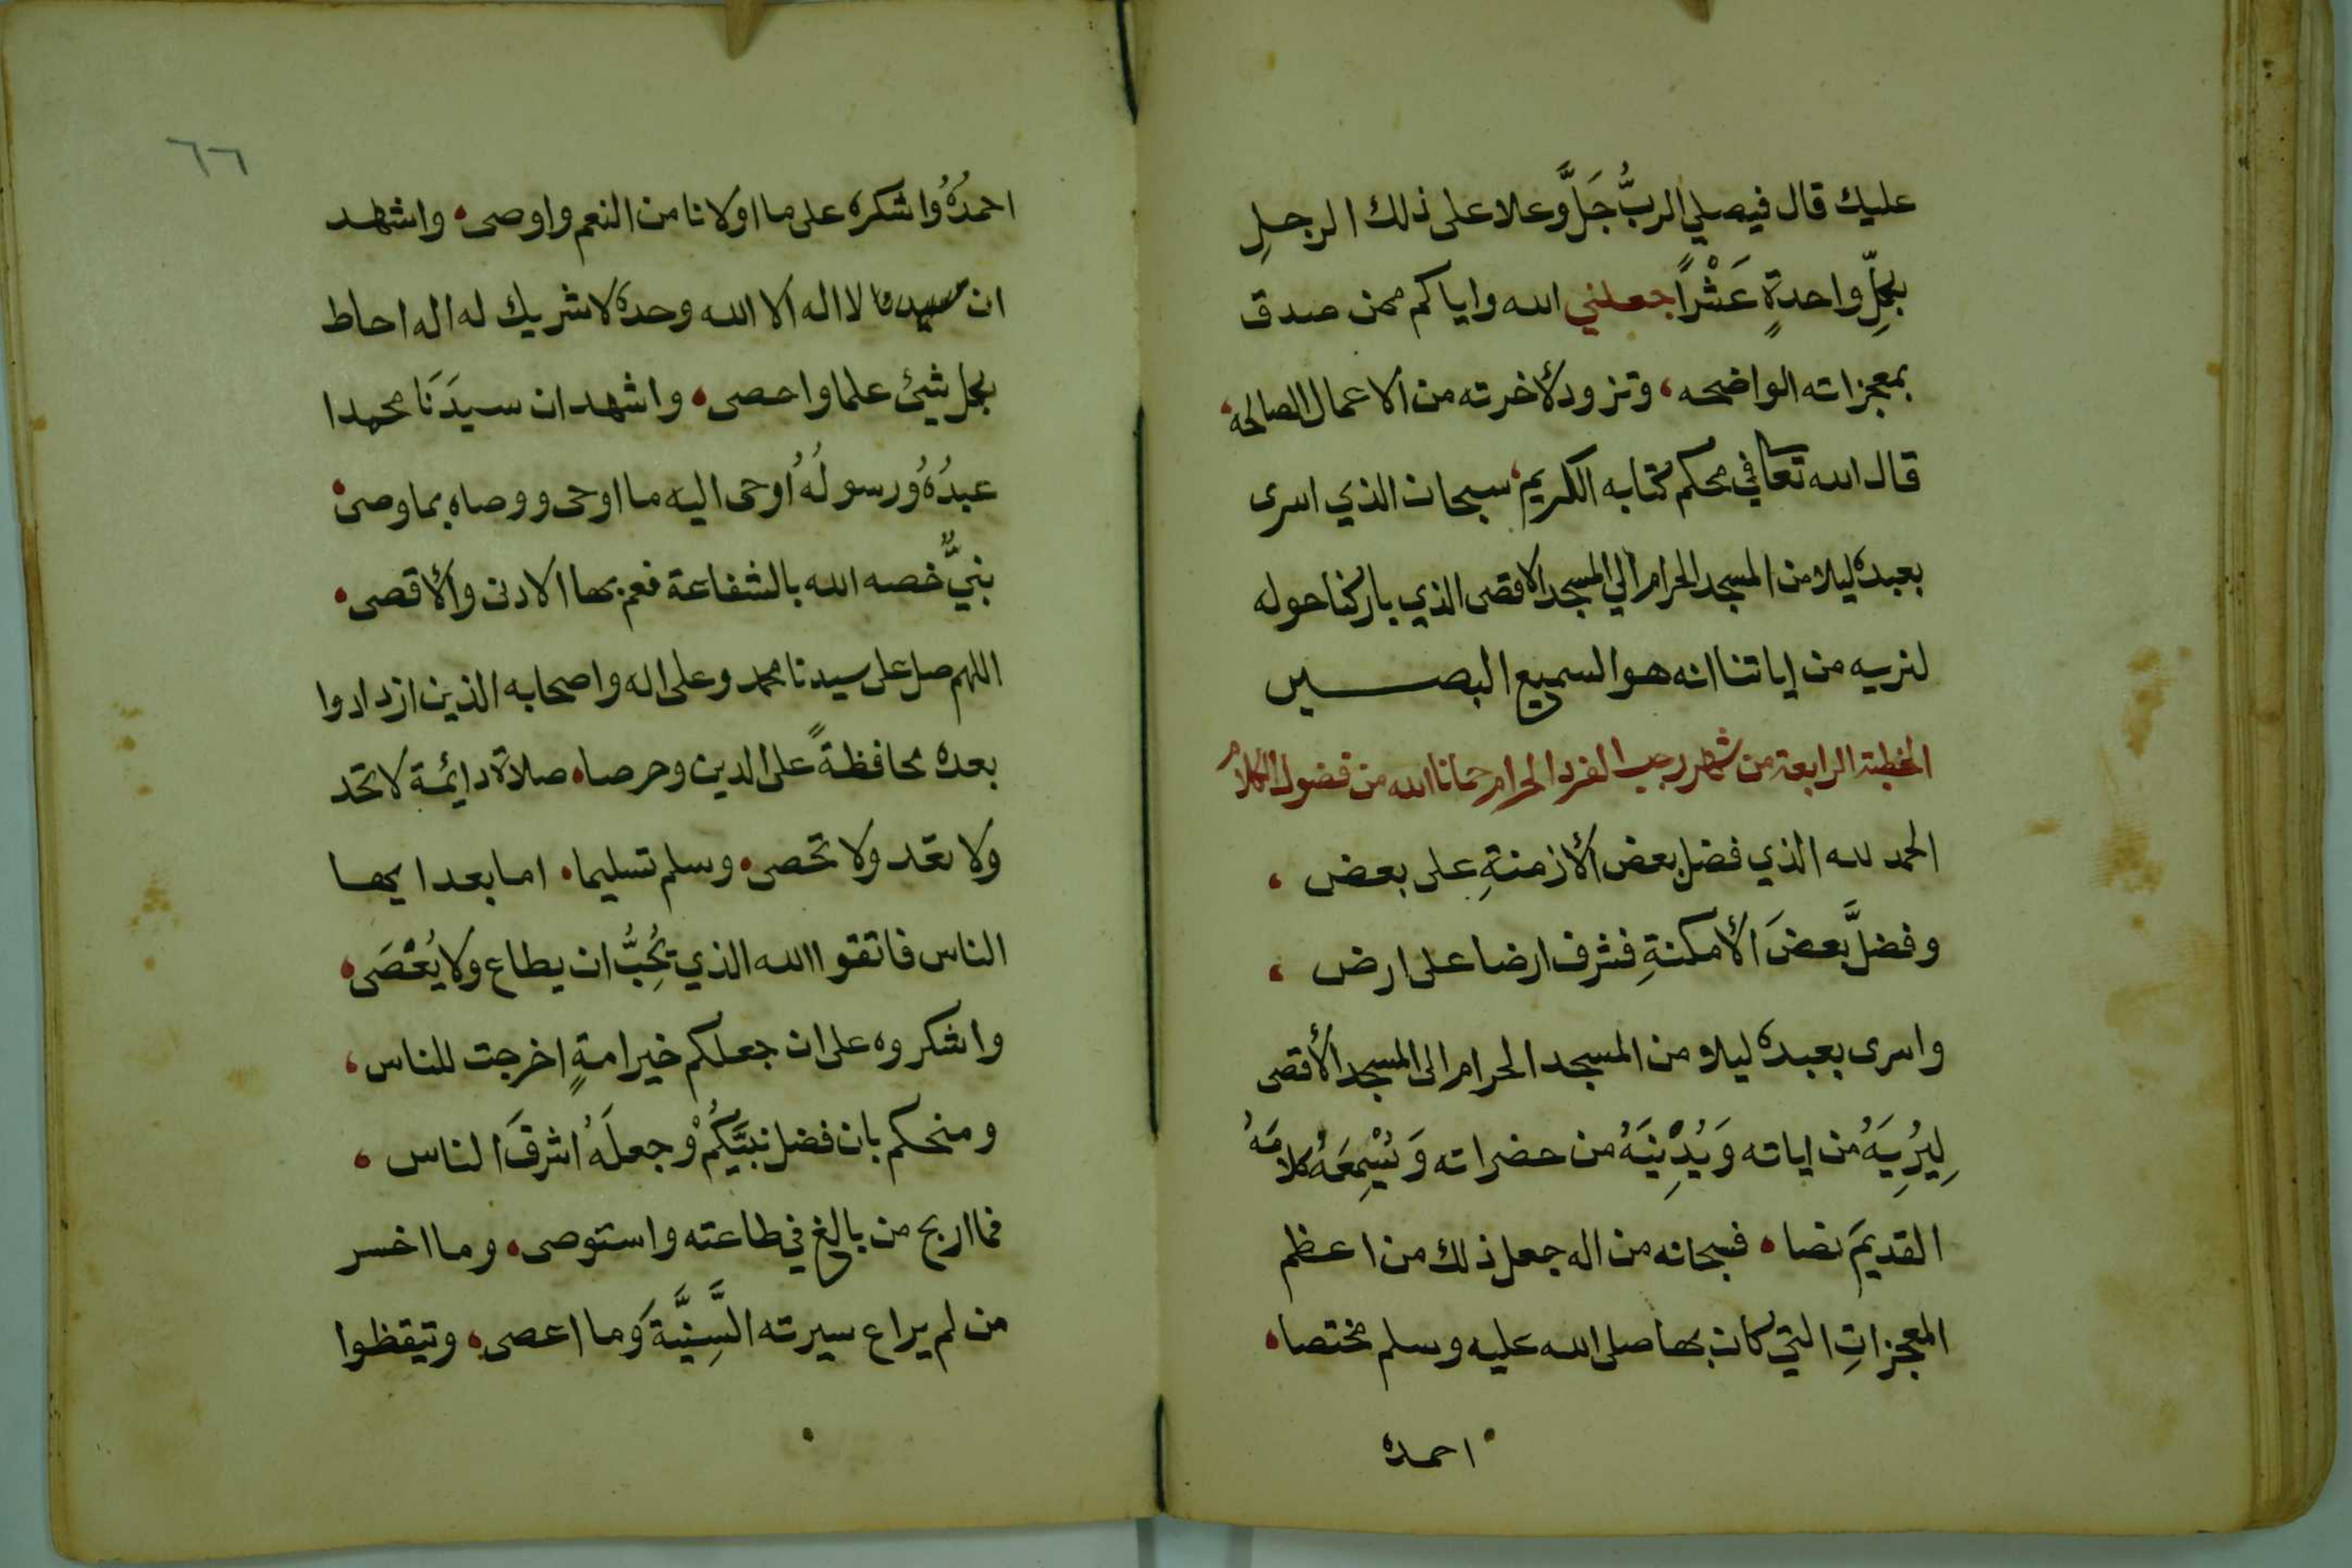 عليك قال فيصلي الربُّ جَلَّ وعلا على ذلك الرجلِ
بكلِّ واحدةٍ عَشْرًا جعلني الله واياكم ممن صدق
بمعجزاته الواضحه، وتزود لأخرته من الاعمال الصالحة،
قال الله تعالى في محكم كتابه الكريم، سبحان الذي اسرى
بعبده ليلا من المسجد الحرام الي المسجد الاقصى الذي باركنا حوله
لنريه من اياتنا انه هو السميع البصير
الخطبة الرابعة من شهر رجب الفرد الحرام حمانا الله من فضول الكلام
الحمد لله الذي فضل بعض الأزمنةِ على بعض ،
وفضلَّ بعضَ الأمكنةِ فشرف ارضا على ارض ،
واسرى بعبده ليلا من المسجد الحرام الى المسجد الأقصى
لِيُرِيَهُ من اياته وَيُدْنِيَهُ من حضراته وَيُسْمِعَهُ كلامَهُ
القديمَ نصا، فسبحانه من اله جعل ذلك من اعظم
المعجزاتِ التي كان بها صلى الله عليه وسلم مختصا،
احمده
٦٦
احمدُهُ واشكره على ما اولانا من النعم واوصى، واشهد
ان لا اله الا الله وحده لا شريك له اله احاط
بكل شيئ علما واحصى، واشهد ان سيدَنَا محمدا
عبدُهُ ورسولُهُ اوحى اليه ما اوحى ووصاه بما وصى،
نبيٌّ خصه الله بالشفاعة فعم بها الادنى والأقصى،
اللهم صل على سيدنا محمد وعلى اله واصحابه الذين ازدادوا
بعده محافظةً على الدين وحرصا، صلاة دائمة لا تحد
ولا تعد ولا تحصى، وسلم تسليما، اما بعد ايها
الناس فاتقوا الله الذي يُحِبُّ ان يطاع ولا يُعْصَى،
واشكروه على ان جعلكم خير امةٍ اخرجت للناس،
ومنحكم بان فضل نبيَّكُمْ وجعلَهُ اشرفَ الناس ،
فما اربح من بالغ في طاعته واستوصى، وما اخسر
من لم يراع سيرته السَّنِيَّةَ وما اعصى، وتيقظوا